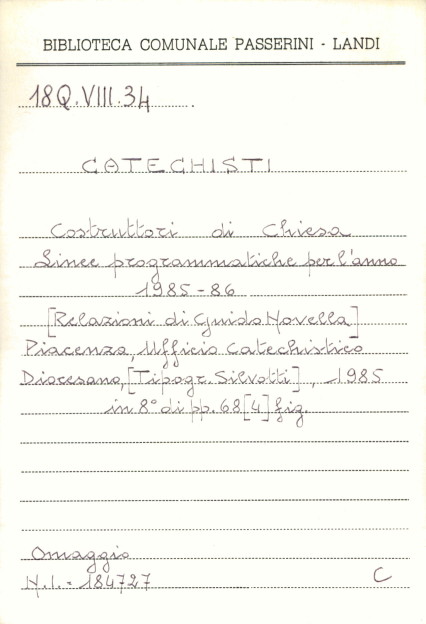 BIBLIOTECA COMUNALE PASSERINI - LANDI
18Q.VIII.34
CATECHISTI
Costruttori di Chiesa
Linee programmatiche per l'anno
1985-86
[Relazioni di Guido Novella]
Piacenza, Ufficio Catechistico
Diocesano, [Tipogr. Silvotti], 1985
in 8° di pp. 68 [4] fig.
Omaggio
N.I. - 184727
C